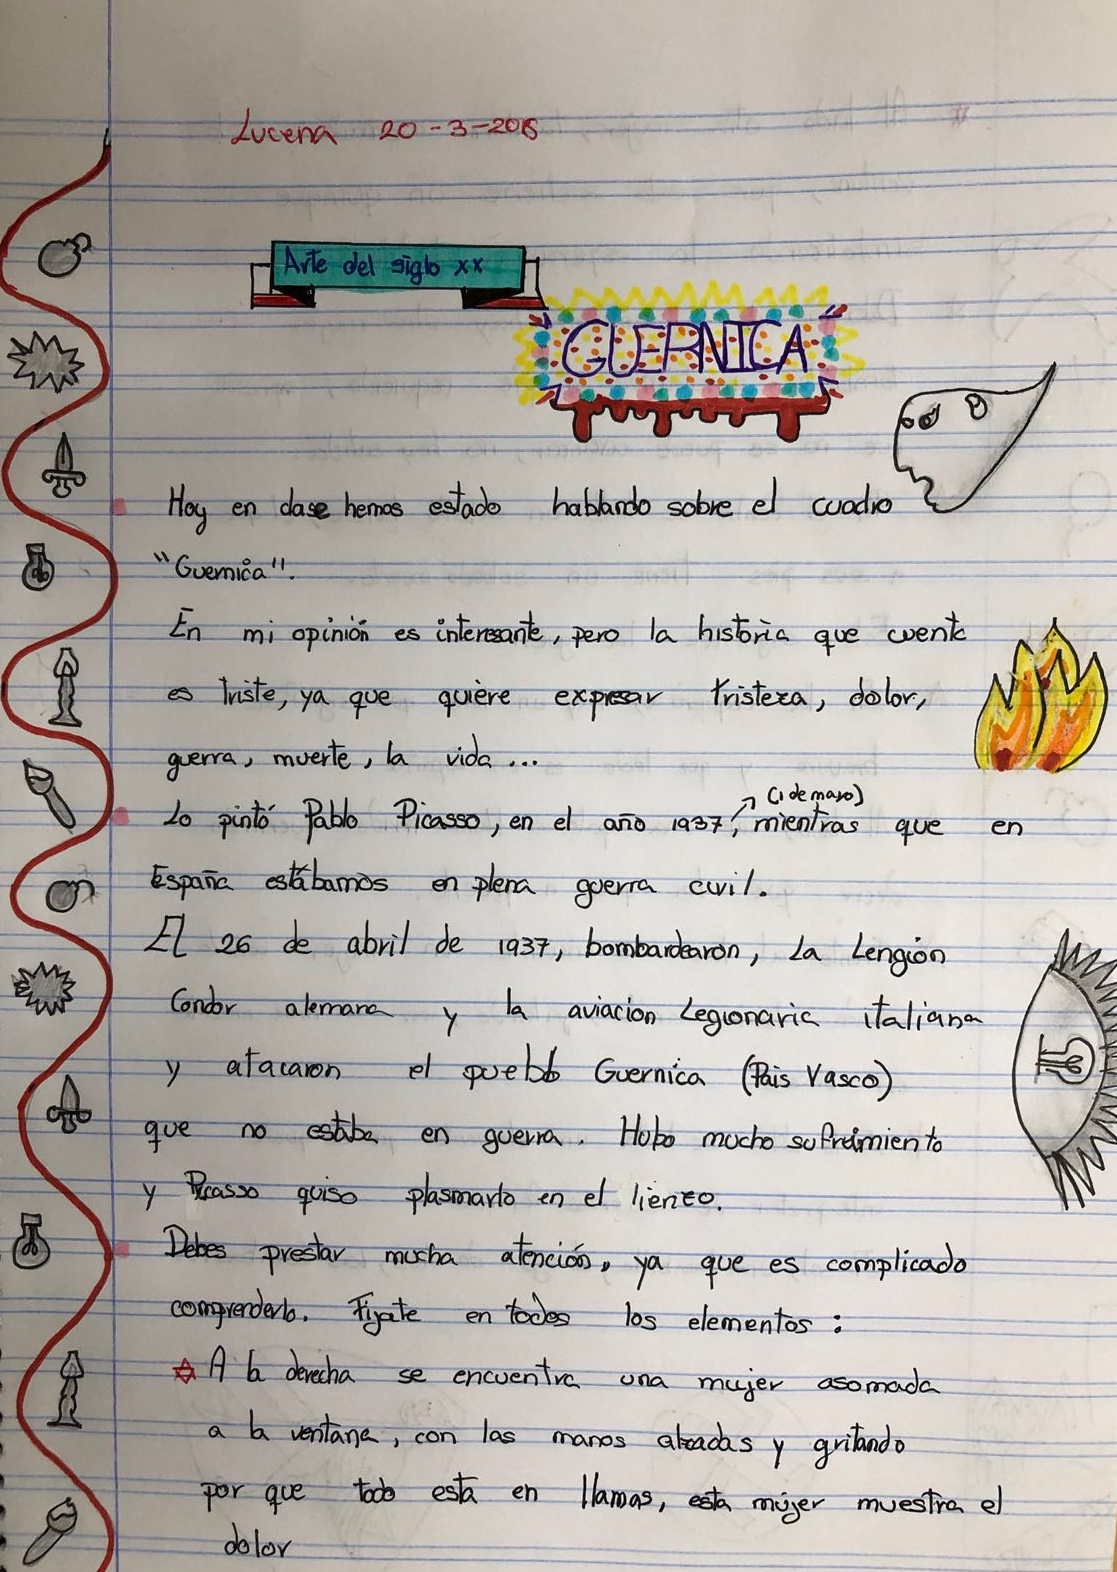 Lucena 20-3-2018
Arte del siglo XX
GUERNICA
Hoy en clase hemos estado hablando sobre el cuadro
"Guernica".
En mi opinión es interesante, pero la historia que cuenta
es triste, ya que quiere expresar tristeza, dolor,
guerra, muerte, la vida ...
(1 de mayo)
Lo pintó Pablo Picasso, en el año 1937, mientras que en
España estábamos en plena guerra civil.
El 26 de abril de 1937, bombardearon, La Lengión
Condor alemana y la aviacion Legionaria italiana
y atacaron el pueblo Guernica (Pais Vasco)
que no estaba en guerra. Hubo mucho sufreimiento
y Picasso quiso plasmarlo en el lienzo.
Debes prestar mucha atención, ya que es complicado
comprenderlo. Fijate en todos los elementos :
A la derecha se encuentra una mujer asomada
a la ventana, con las manos alzadas y gritando
por que todo esta en llamas, esta mujer muestra el
dolor